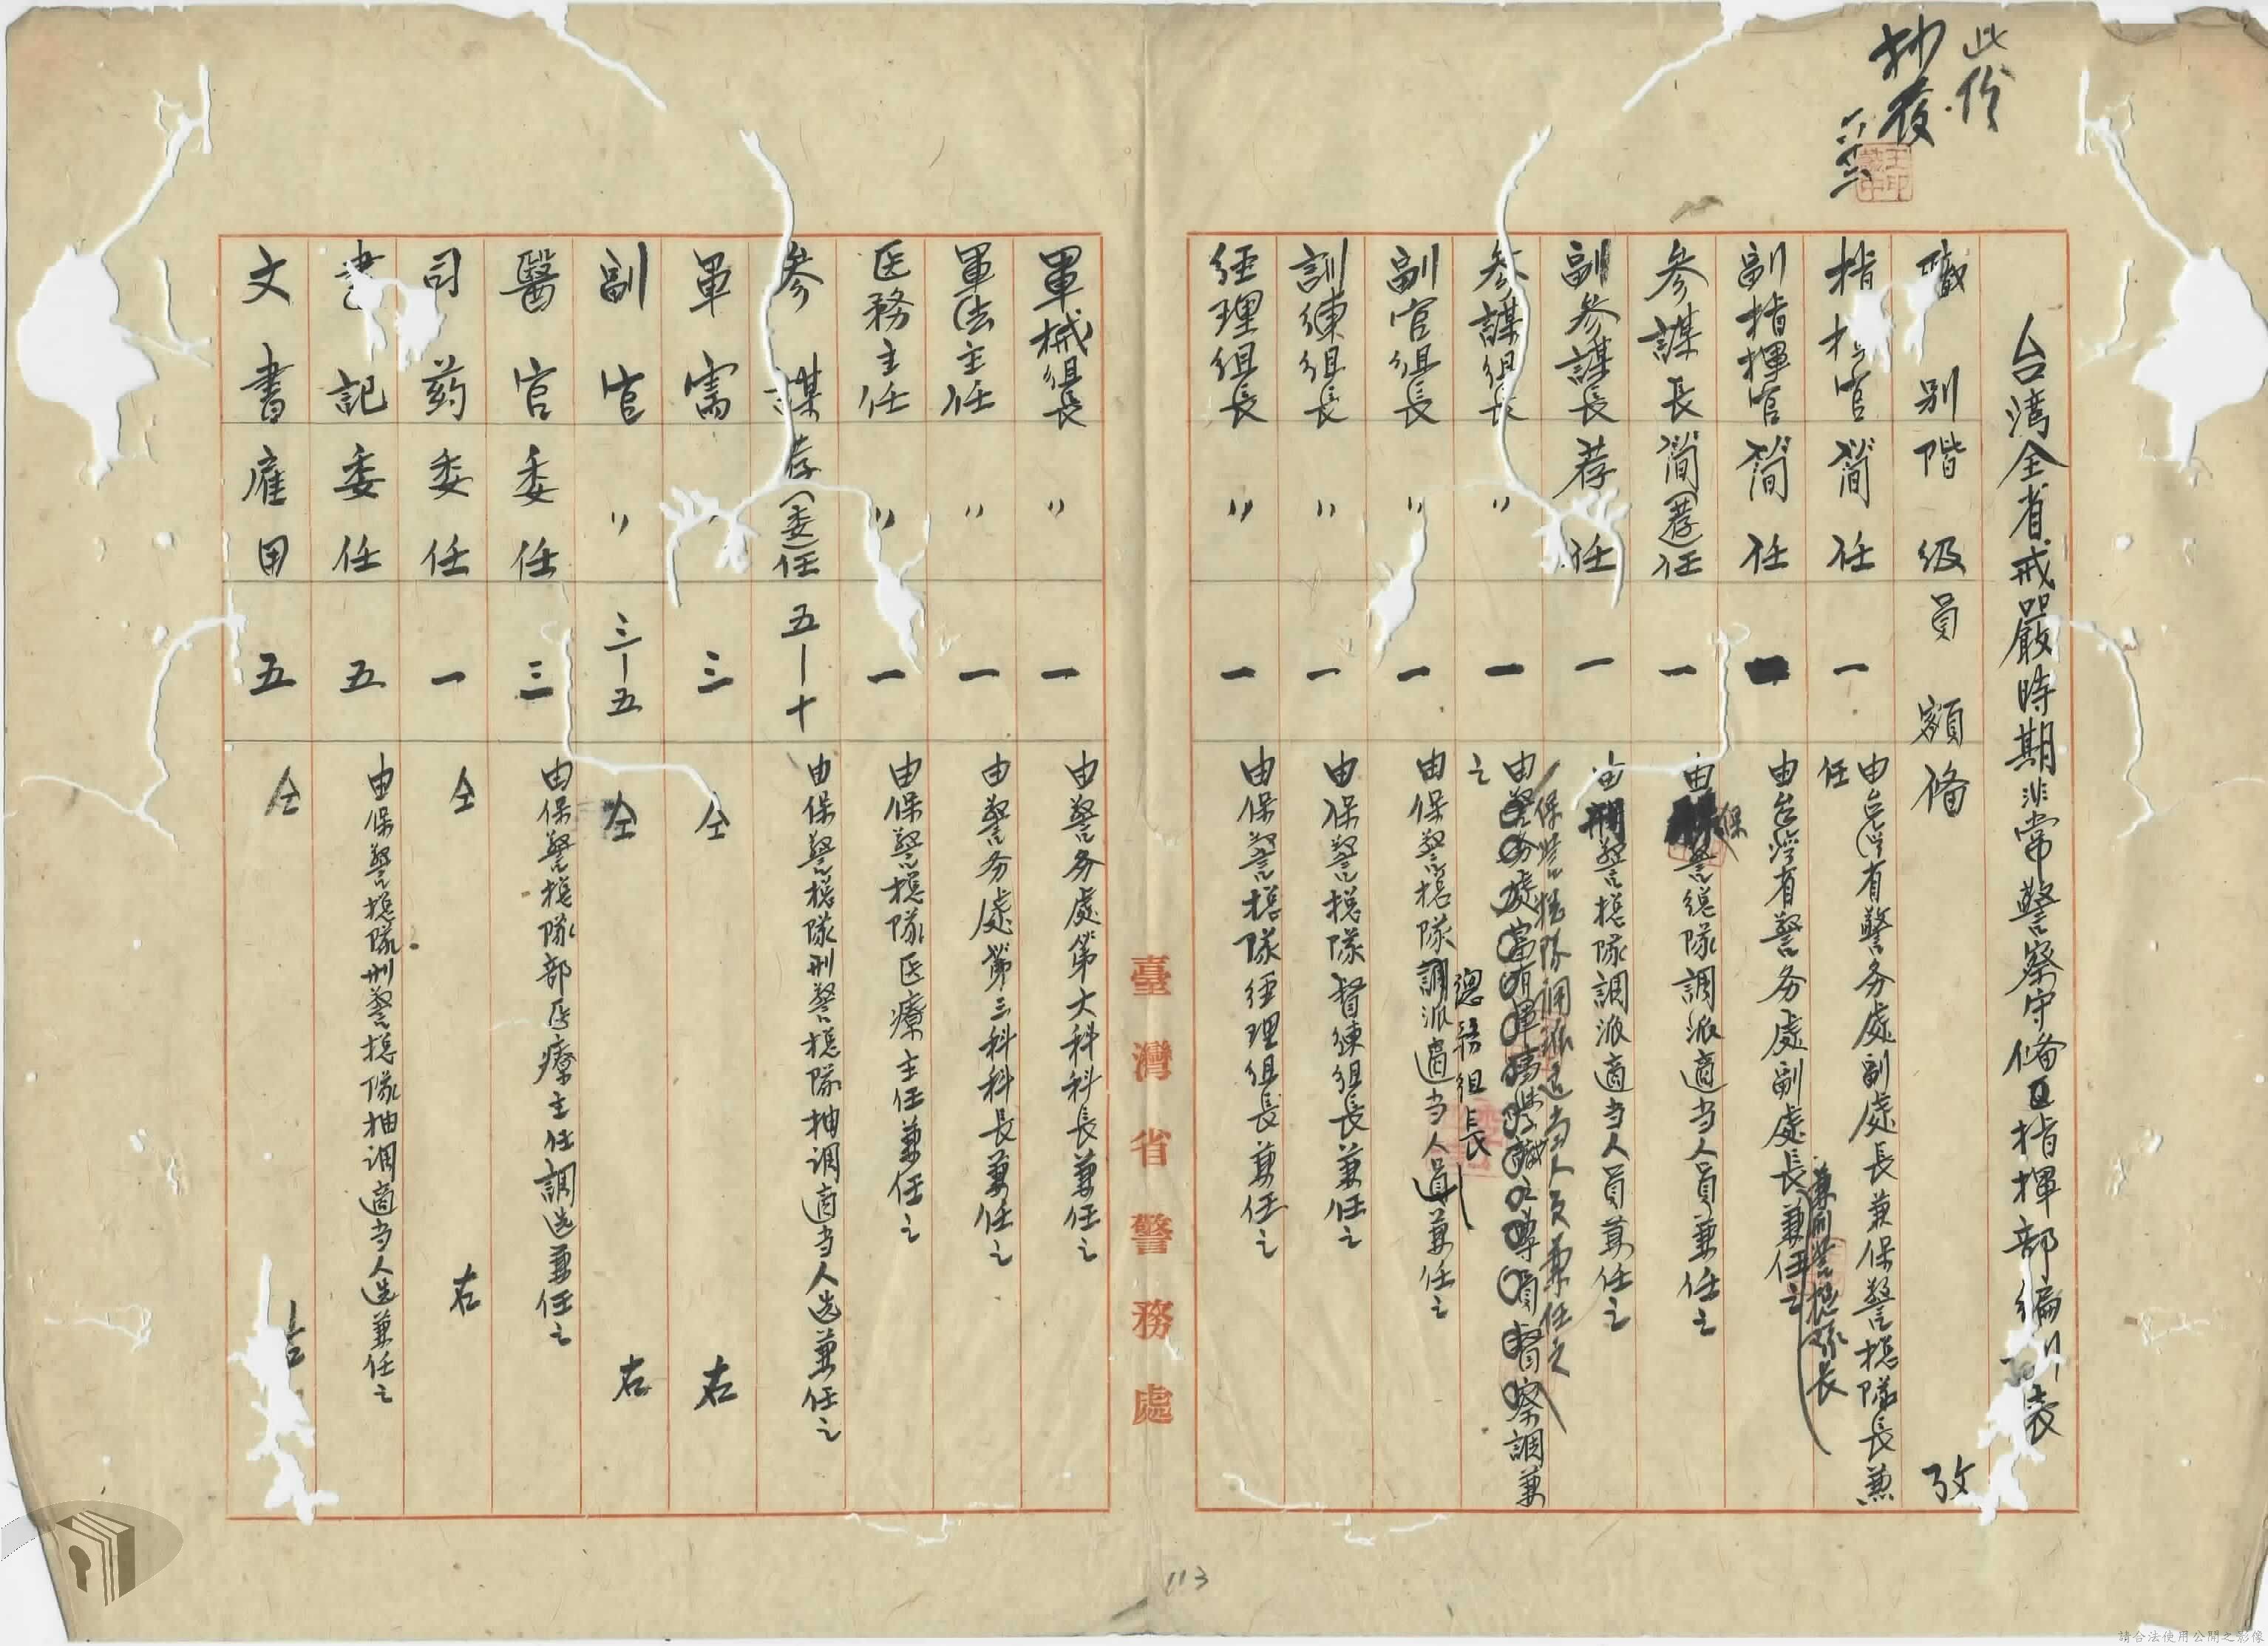 此份
抄後
台湾全省戒嚴時期非常警察守俻區指揮部編制表
職別 階級 員額 俻攷
指揮官 簡任 一 由台湾省警务處副處長兼保警總隊長兼任
副指揮官 簡任 一 由台湾省警务處副處長兼任之
兼刑警總隊長
參謀長 簡(荐)任 一 由保警總隊調派適当人員兼任之
副參謀長 荐任 一 由刑警總隊調派適当人員兼任之
保警總隊调派适当人员兼任之
參謀組長 〃 一 由警务處 督察調兼之
總務組長
副官組長 〃 一 由保警總隊調派適当人員兼任之
訓練組長 〃 一 由保警總隊督練組長兼任之
经理組長 〃 一 由保警總隊经理组長兼任之
臺灣省警務處
軍械組長 〃 一 由警务處第六科科長兼任之
軍法主任 〃 一 由警务處第三科科長兼任之
医務主任 〃 一 由保警總隊医療主任兼任之
參謀 荐(委)任 五—十 由保警總隊刑警總隊抽调適当人选兼任之
軍需 〃 三 仝右
副官 〃 三—五 仝右
醫官 委任 三 由保警總隊部医療主任調选兼任之
司药 委任 一 仝右
書記 委任 五 由保警總隊刑警總隊抽调適当人选兼任之
文書 雇用 五 仝右
113
請合法使用公開之影像